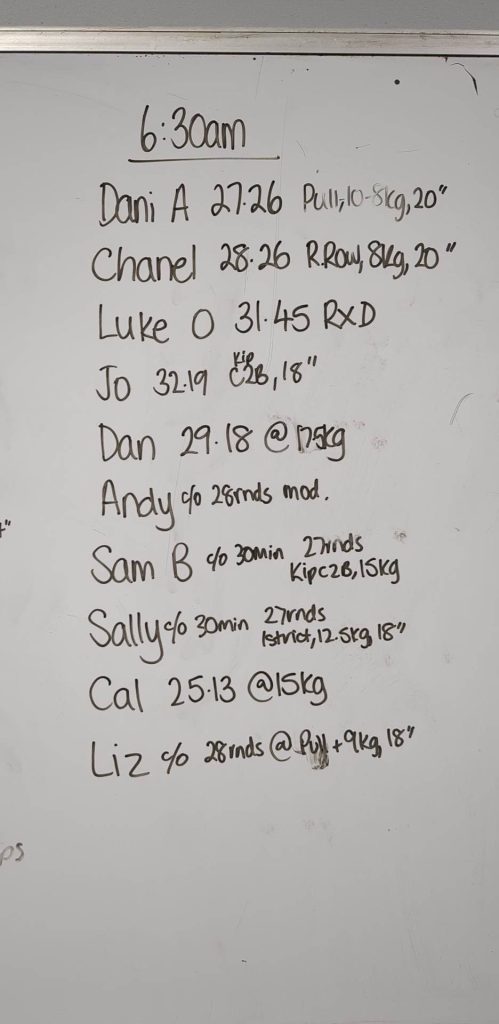 6:30am
Dani A 27.26 Pull, 10-8kg, 20"
Chanel 28.26 R.Row, 8kg, 20"
Luke O 31.45 RXD
Jo 32.19 kip C2B, 18"
Dan 29.18 @ 17.5kg
Andy c/o 28rnds mod.
Sam B c/o 30min 27rnds
Kipc2B, 15kg
Sally c/o 30min 27rnds
1strict, 12.5kg, 18"
Cal 25.13 @15kg
Liz c/o 28rnds @ Pull + 9kg, 18"
ps